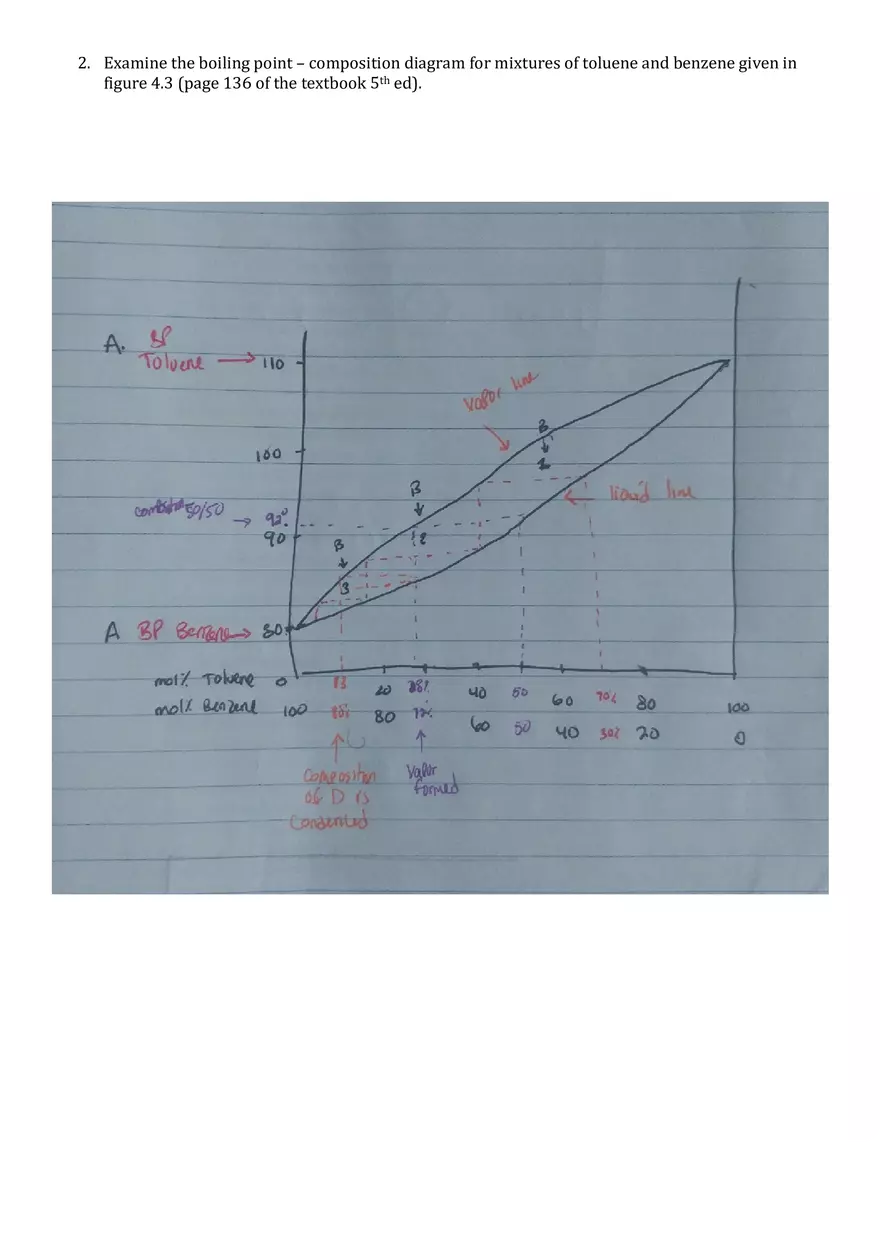 2. Examine the boiling point – composition diagram for mixtures of toluene and benzene given in
figure 4.3 (page 136 of the textbook 5th ed).
A. BP
Toluene → 110
Vapor line
B
2
100
B
liquid line
50/50 → 92°
90
B
3
A BP Benzene → 80
mol% Toluene 0 13 20 28% 40 50 60 70% 80 100
mol% Benzene 100 80 72% 60 50 40 30% 20 0
Composition
of D is
Condensed
Vapor
formed